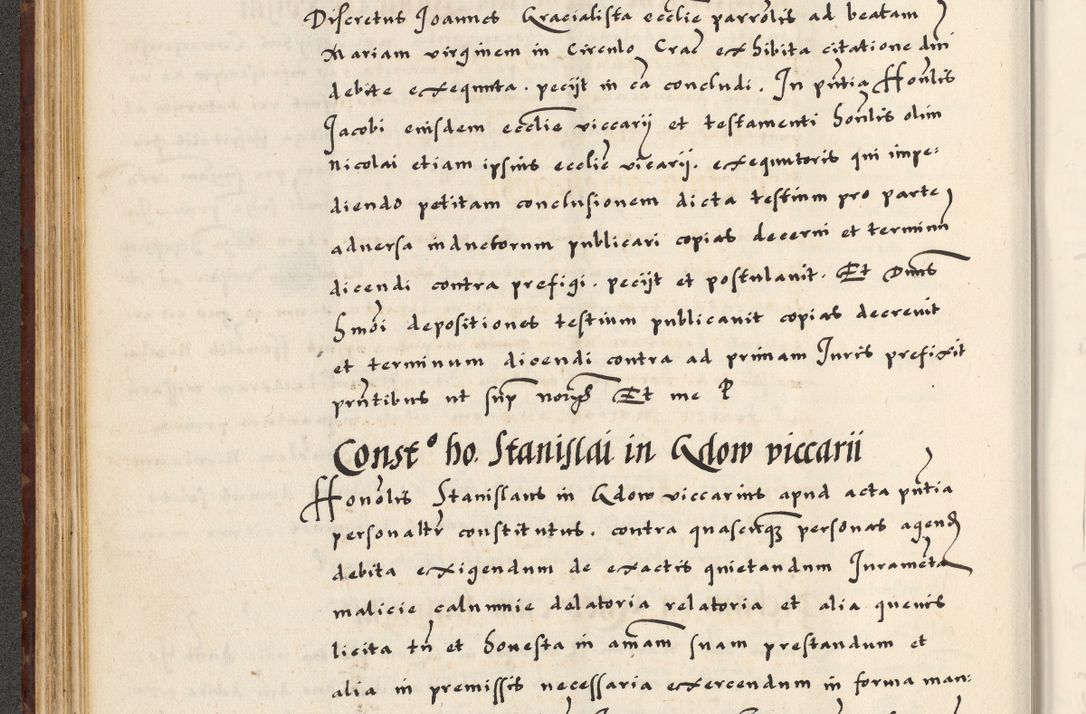 Discretus Joannes Gracialista ecclie parrolis ad beatam
Mariam virginem in Circulo Crac exhibita citatione dni
debite exequuta. peciit in ea concludi. In pntia Honlis
Jacobi eiusdem ecclie viccarij et testamenti honlis olim
Nicolai etiam ipsius ecclie vicarij. exequutoris qui impe:
diendo petitam conclusionem dicta testium pro parte
adversa inductorum publicari copias decerni et terminu
dicendi contra prefigi. peciit et postulavit. Et Dnus
hmoi depositiones testium publicavit copias decrevit
et terminum dicendi contra ad primam Juris prefixit
pntibus ut sup Et me P
Const° ho. Stanislai in Gdow viccarii
Honolis Stanislaus in Gdow viccarius apud acta pntia
personaltr constitutus. contra quascuqz personas agend
debita exigendum de exactis quietandum Jurameta
malicie calumnie delatoria relatoria et alia quevis
licita tn et honesta in amam suam prestandum et
alia in premissis necessaria exercendum in forma man: